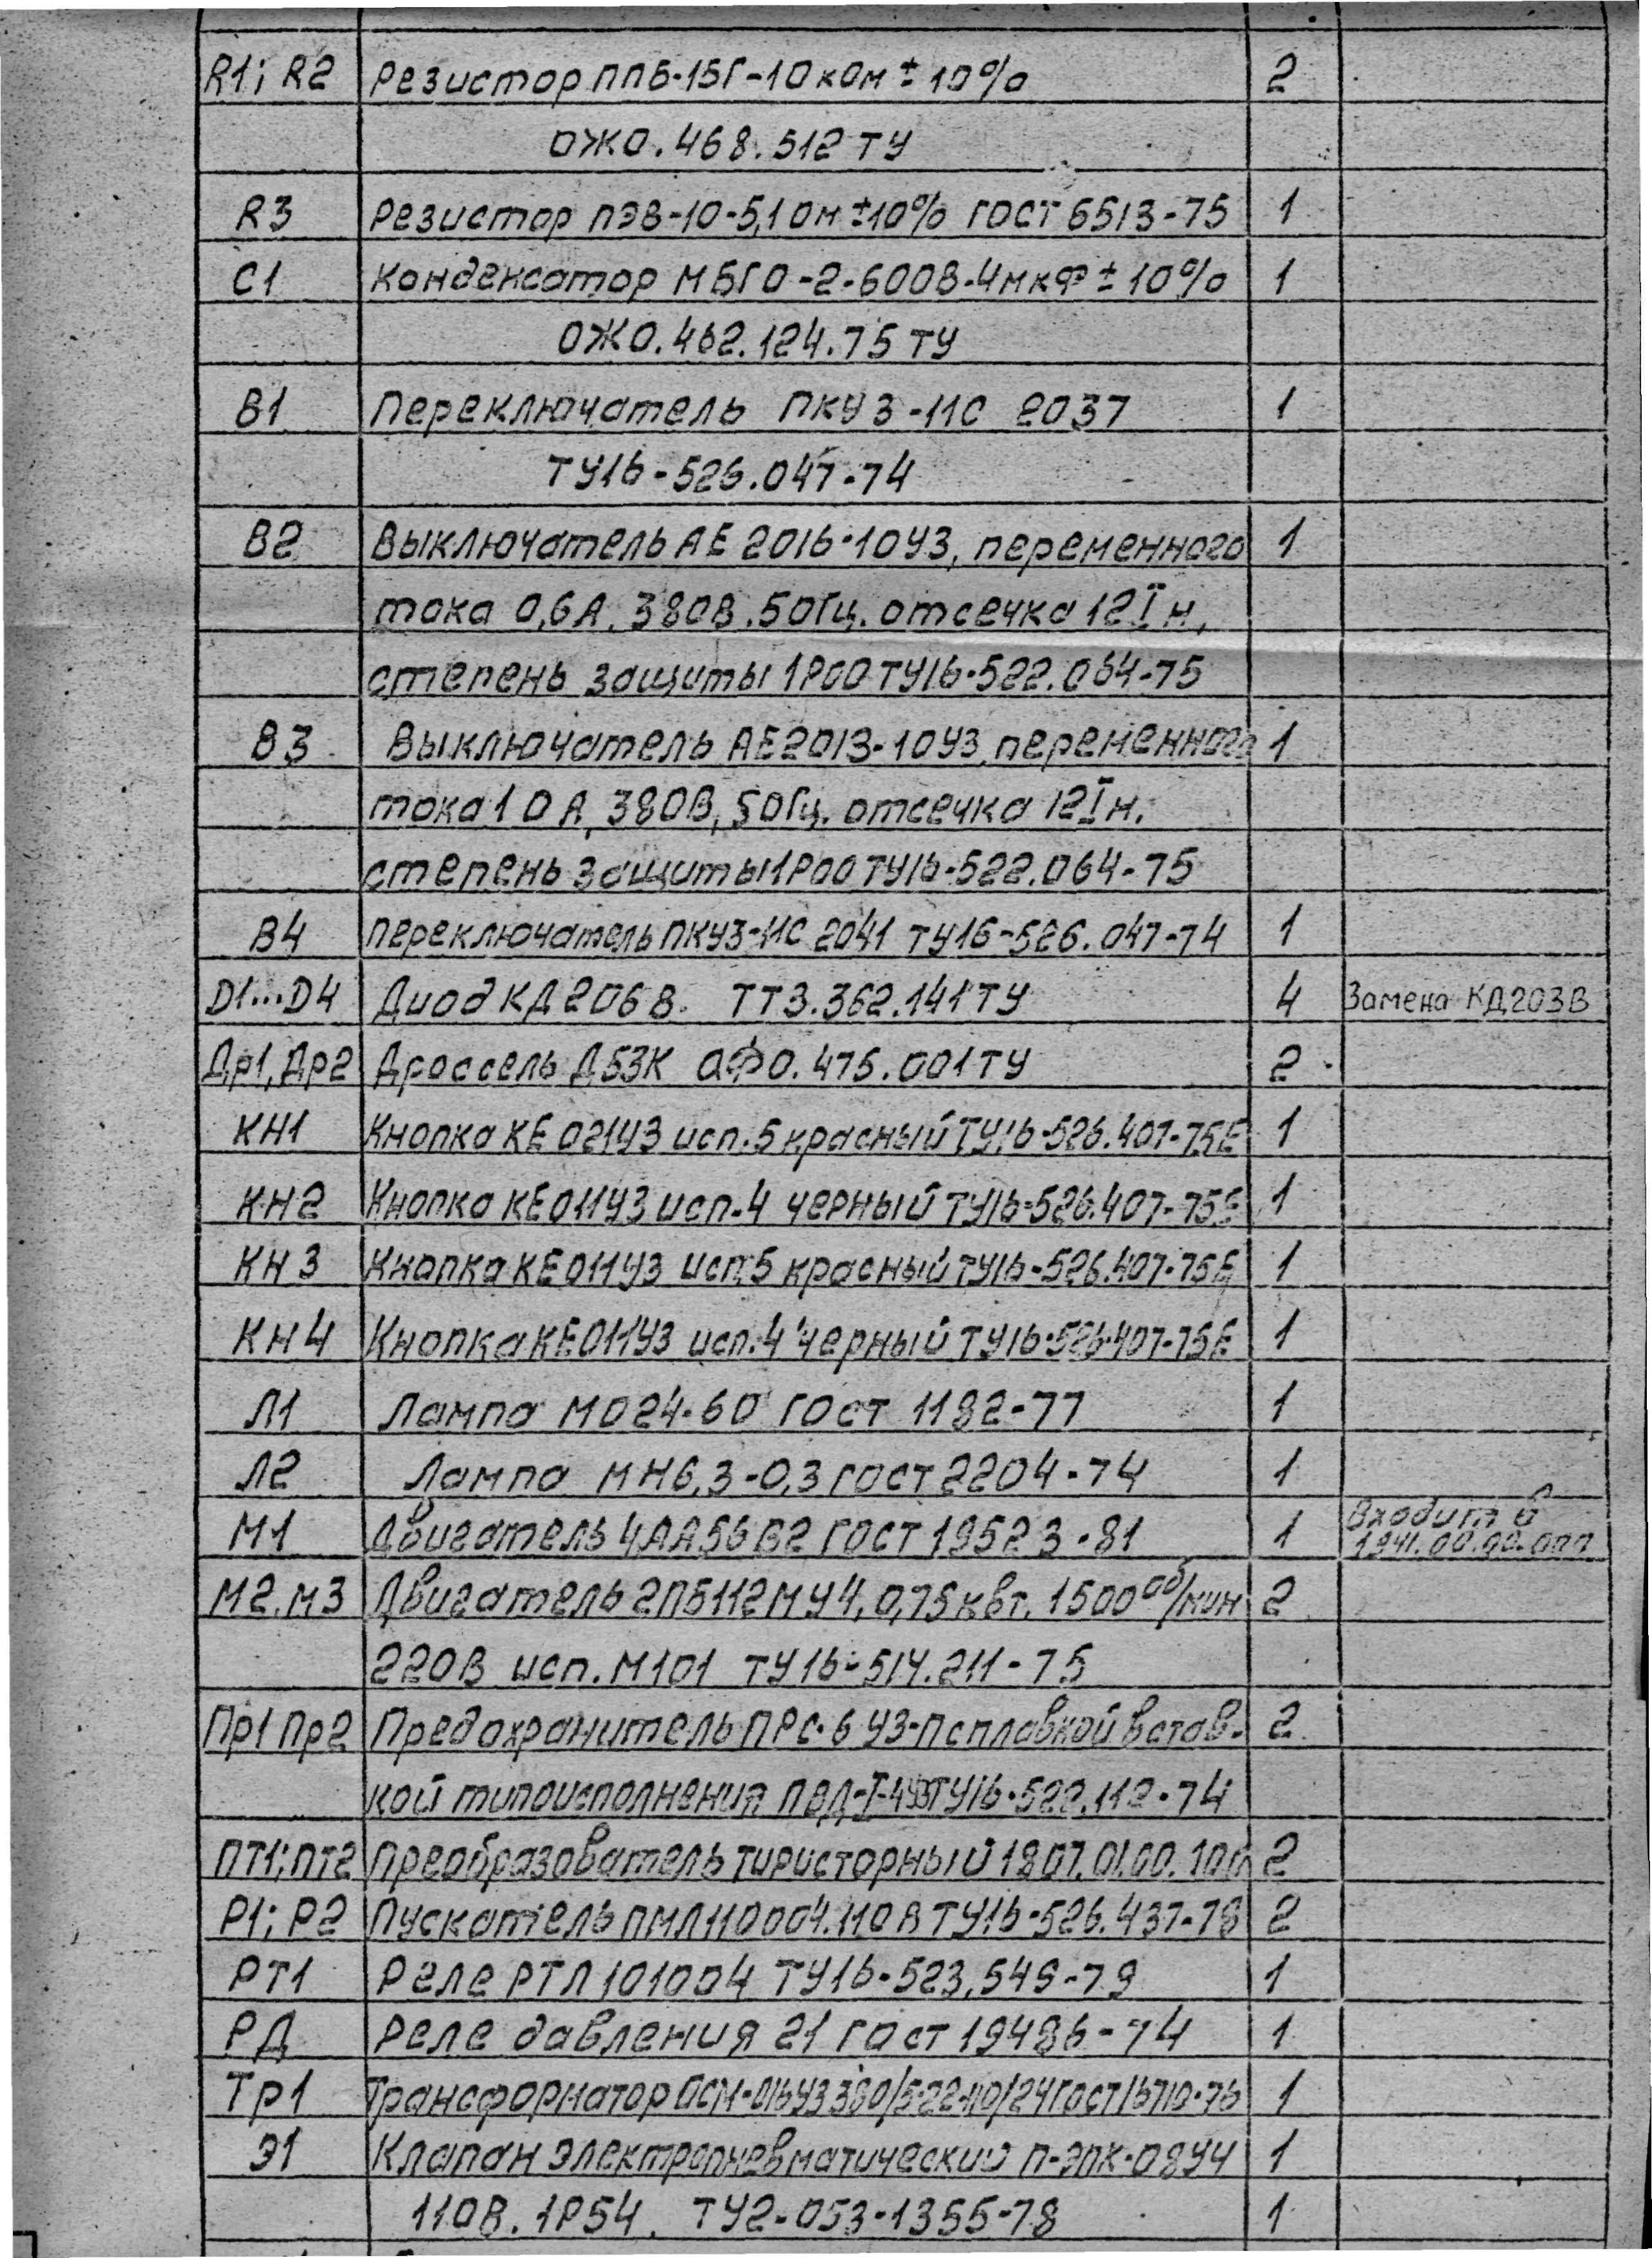 R1; R2 Резистор ППБ-15Г-10 кОм ± 10% 2
ОЖ0.468.512 ТУ
R3 Резистор ПЭВ-10-5,1 Ом ±10% ГОСТ 6513-75 1
С1 Конденсатор МБГО-2-600В-4мкФ ± 10% 1
ОЖ0.462.124.75 ТУ
В1 Переключатель ПКУ3-11С 2037 1
ТУ16-526.047-74
В2 Выключатель АЕ 2016-10У3, переменного 1
тока 0,6А, 380В, 50Гц, отсечка 12Iн,
степень защиты 1Р00 ТУ16-522.064-75
В3 Выключатель АЕ2013-10У3, переменного 1
тока 10А, 380В, 50Гц, отсечка 12Iн.
степень защиты 1Р00 ТУ16-522.064-75
В4 Переключатель ПКУ3-11С 2041 ТУ16-526.047-74 1
D1...D4 Диод КД 206В. ТТ3.362.141ТУ 4 Замена КД203В
Др1, Др2 Дроссель Д53К ОФ0.475.001ТУ 2
КН1 Кнопка КЕ 021У3 исп.5 красный ТУ16-526.407-75Е 1
КН2 Кнопка КЕ011У3 исп.4 черный ТУ16-526.407-75Е 1
КН3 Кнопка КЕ011У3 исп.5 красный ТУ16-526.407-75Е 1
КН4 Кнопка КЕ011У3 исп.4 черный ТУ16-526.407-75Е 1
Л1 Лампа МО24-60 ГОСТ 1182-77 1
Л2 Лампа МН6,3-0,3 ГОСТ 2204-74 1
М1 Двигатель 4АА56В2 ГОСТ 19523-81 1 Входит в
1941.00.00.000
М2, М3 Двигатель 2ПБ112МУ4, 0,75квт, 1500 об/мин 2
220В исп.М101 ТУ16-514.211-75
Пр1 Пр2 Предохранитель ПРС-6 У3-П с плавкой встав- 2
кой типоисполнения ПВД-I-4У3 ТУ16-522.112-74
ПТ1; ПТ2 Преобразователь тиристорный 1807.01.00.100 2
Р1; Р2 Пускатель ПМЛ110004.110В ТУ16-526.437-78 2
РТ1 Реле РТЛ101004 ТУ16-523.549-79 1
РД Реле давления 21 ГОСТ 19486-74 1
Тр1 Трансформатор ОСМ-016У3 380/5-22-110/24 ГОСТ 16710-76 1
Э1 Клапан электропневматический П-ЭПК-08У4 1
110В. 1Р54. ТУ2-053-1355-78 1